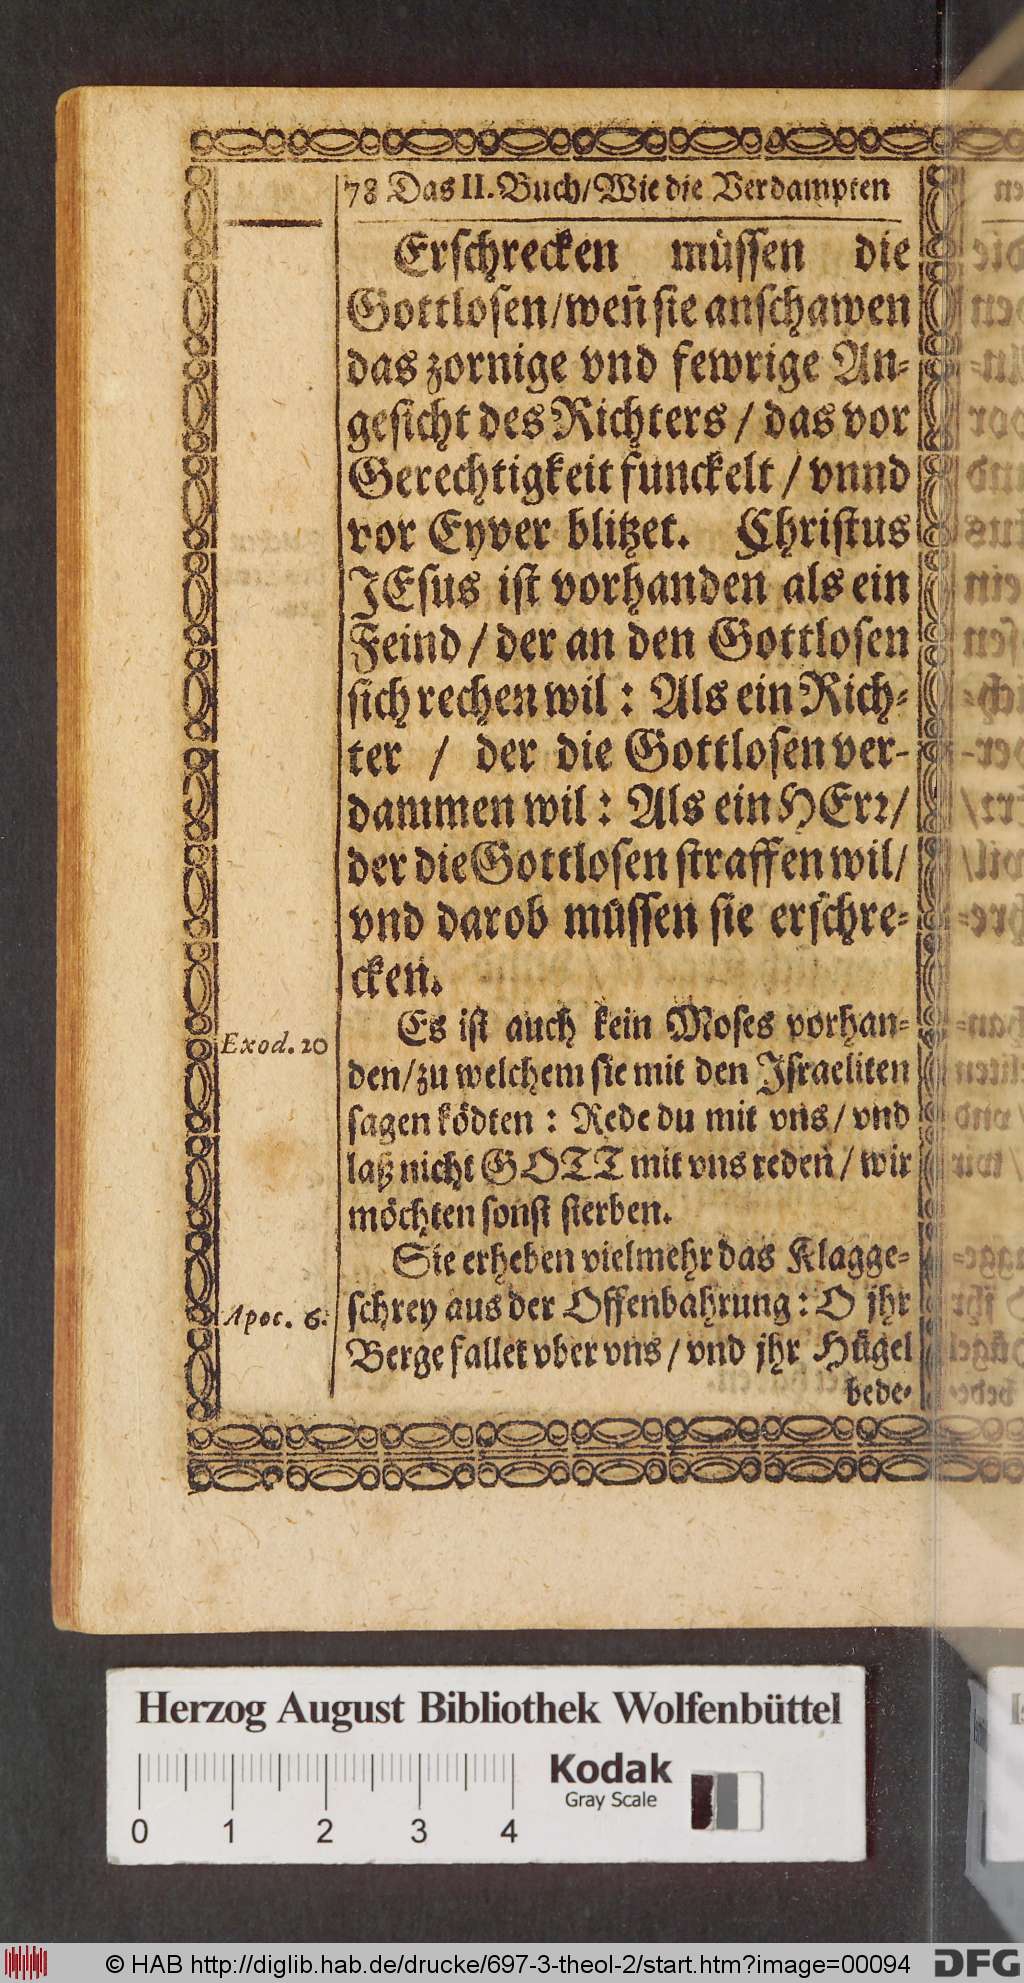 78 Das II. Buch/ Wie die Verdampten
Erschrecken müssen die
Gottlosen/ weñ sie anschawen
das zornige vnd fewrige An-
gesicht des Richters / das vor
Gerechtigkeit funckelt / vnnd
vor Eyver blitzet. Christus
JEsus ist vorhanden als ein
Feind / der an den Gottlosen
sich rechen wil : Als ein Rich-
ter / der die Gottlosen ver-
dammen wil : Als ein HErꝛ/
der die Gottlosen straffen wil/
vnd darob müssen sie erschre-
cken.
Es ist auch kein Moses vorhan-
Exod. 20
den/ zu welchem sie mit den Israeliten
sagen ködten : Rede du mit vns / vnd
laß nicht GOTT mit vns reden / wir
möchten sonst sterben.
Sie erheben vielmehr das Klagge-
Apoc. 6.
schrey aus der Offenbahrung : O jhr
Berge fallet vber vns / vnd jhr Hügel
bede-
Herzog August Bibliothek Wolfenbüttel
0 1 2 3 4
Kodak
Gray Scale
© HAB http://diglib.hab.de/drucke/697-3-theol-2/start.htm?image=00094
DFG